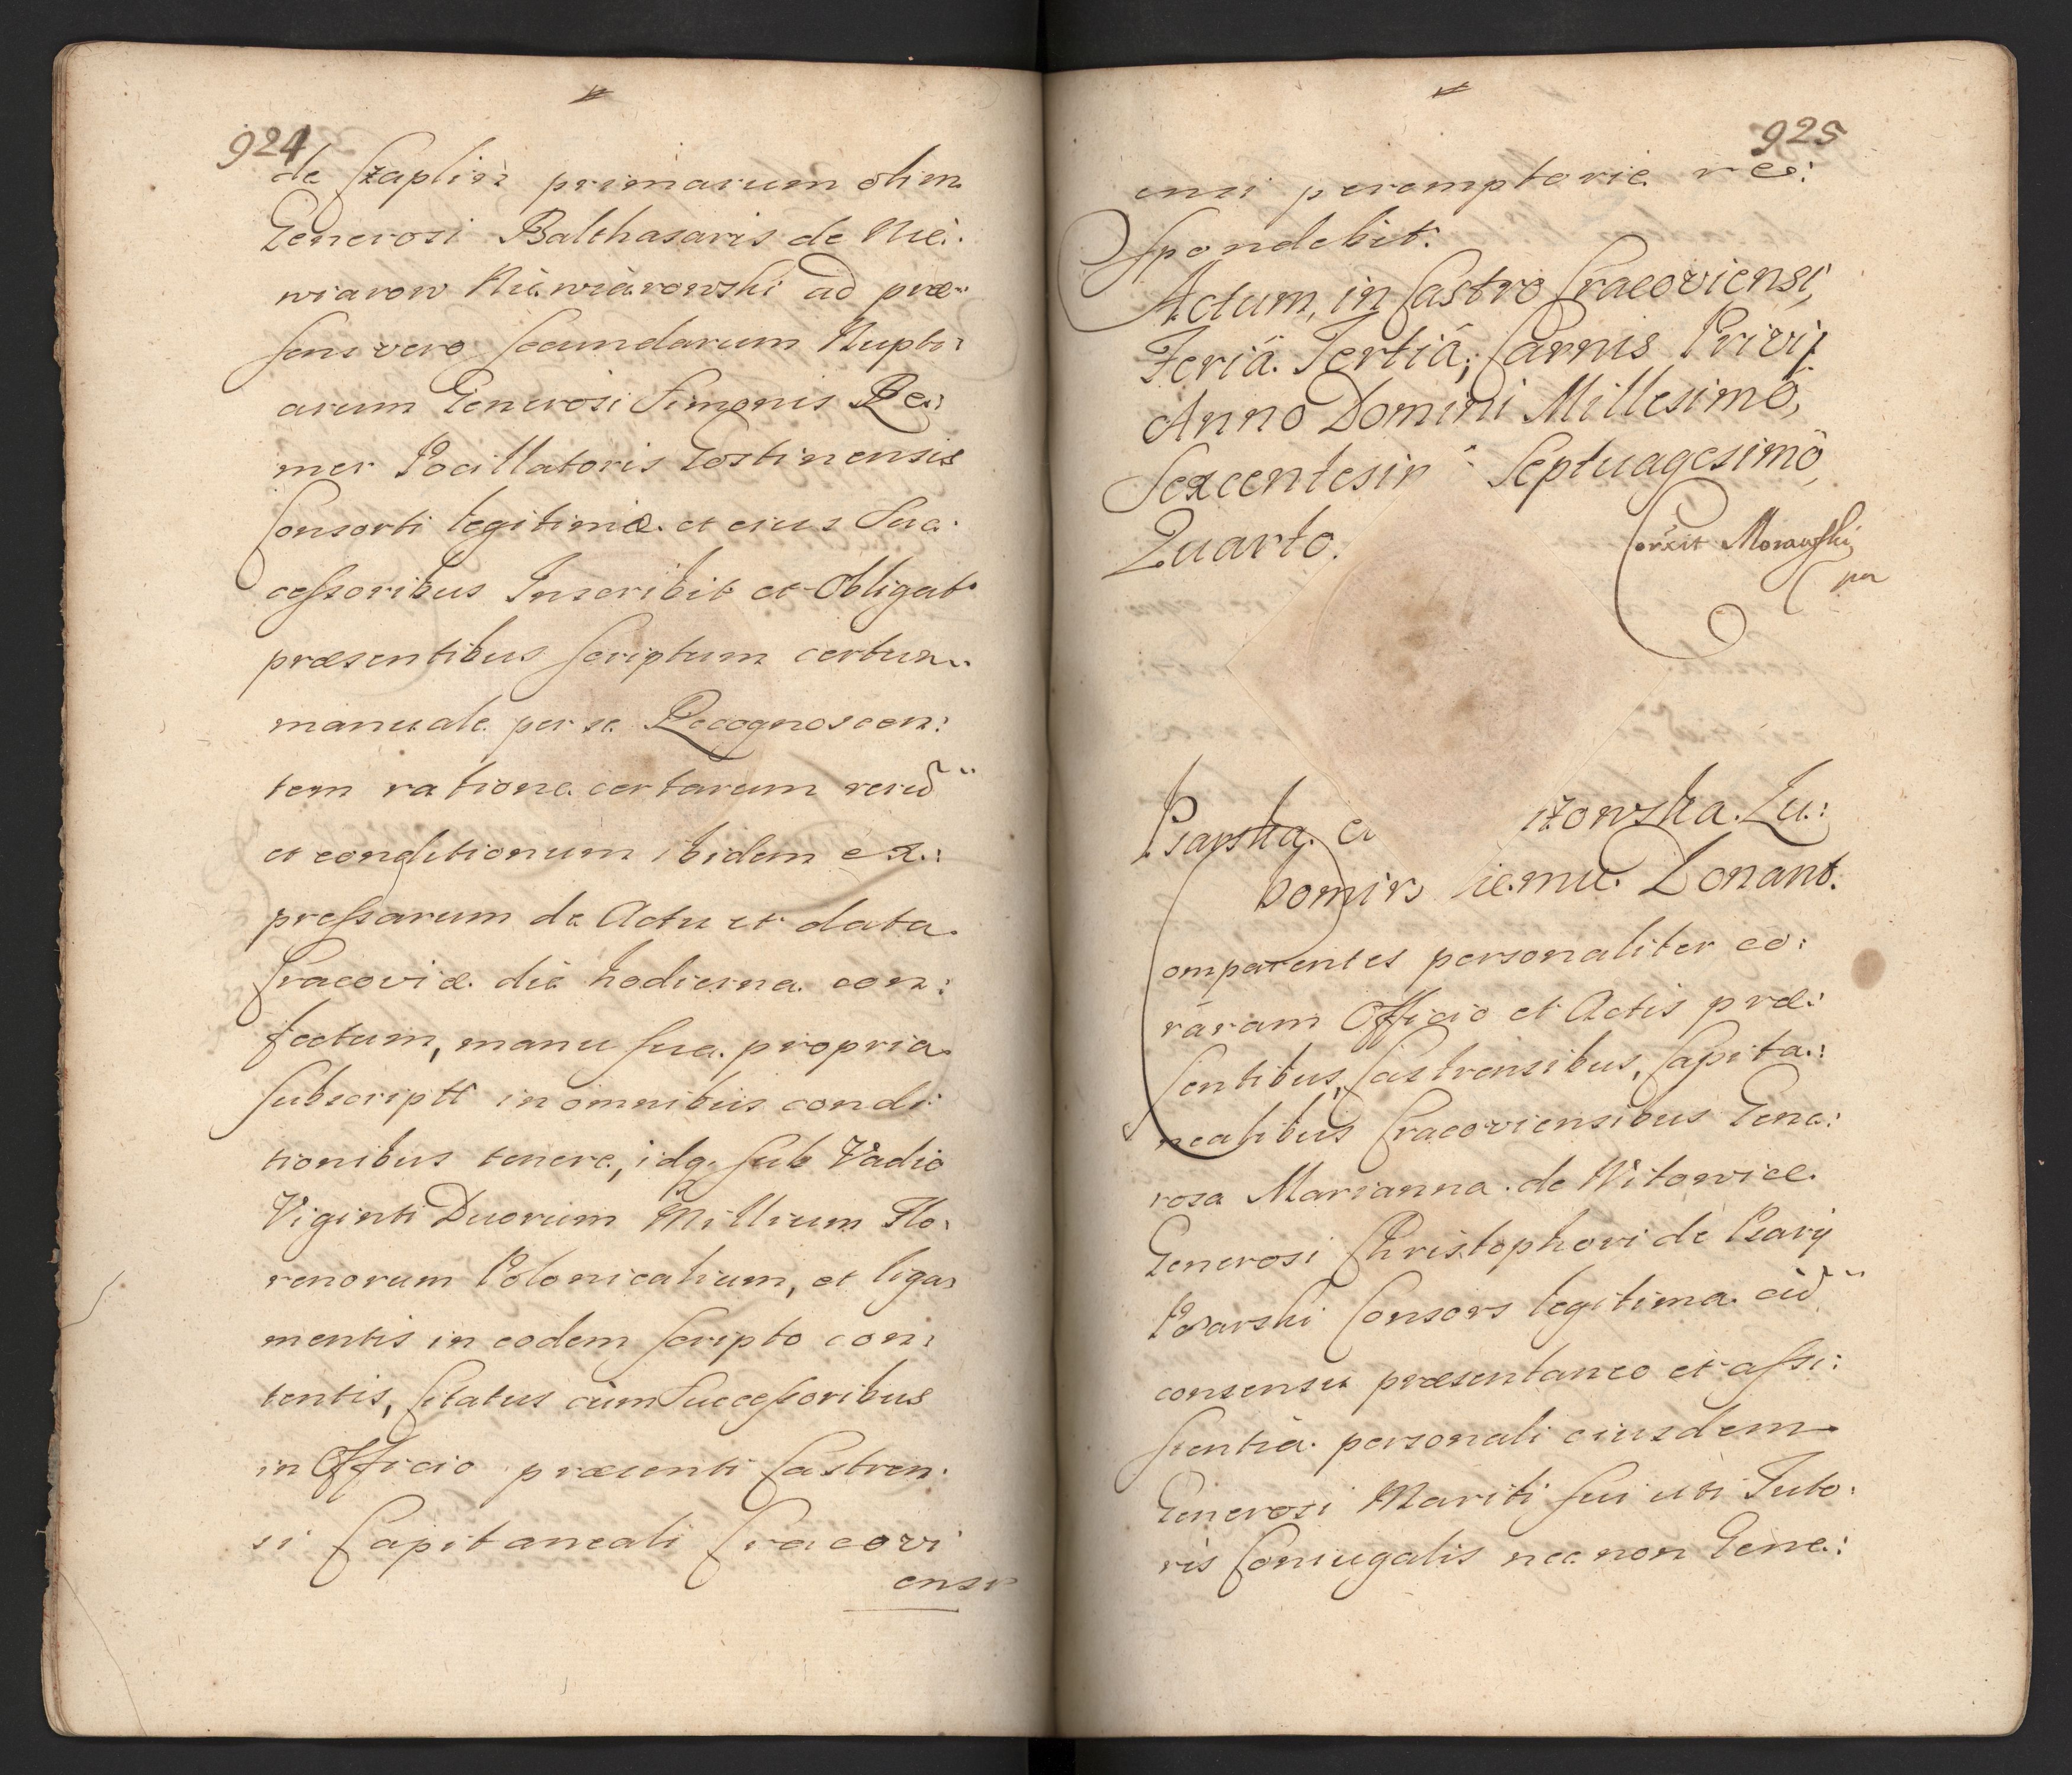 924
de Czaplin primarum olim
Generosi Balthasaris de Nie:
wiarow Niewiarowski ad præ
sens vero secundarum Nupti:
arum Generosi Simonis Re:
mer Pocillatoris Gostinensis
Consorti legitimæ et eius Suc
cessoribus Inscribit et Obligat
præsentibus scriptum certum
manuale per se Recognoscen:
tem ratione certarum rerũ
et conditionum ibidem ex:
pressarum de Actu et data
Cracoviæ die hodierna con:
fectum, manu sua propria
subscriptt in omnibus condi:
tionibus tenere, idq. sub Vadio
Viginti Duorum Millium Flo:
renorum Polonicalium, et liga:
mentis in eodem scripto con:
tentis, Citatus cum Successoribus
in Officio præsenti Castren:
si Capitaneali Cracovi
ensi
925
ensi peremptorie res:
pondebit.
Actum, in Castro Cracoviensi,
Feriâ Tertiâ, Carnis Privij
Anno Domini Millesimô,
Sexcentesim Septuagesimô,
Quarto.
Correxit Morawski
mp
Psarska e zowska Lu:
bomirs iemu Donant.
Comparentes personaliter co:
raram Officio et Actis præ:
sentibus, Castrensibus, Capita:
nealibus Cracoviensibus Gene:
rosa Marianna de Witowice
Generosi Christophori de Psary
Psarski Consors legitima cũ
consensu præsentaneo et assi:
stentia personali eiusdem
Generosi Mariti sui uti Tuto:
ris Coniugalis nec non Gene: